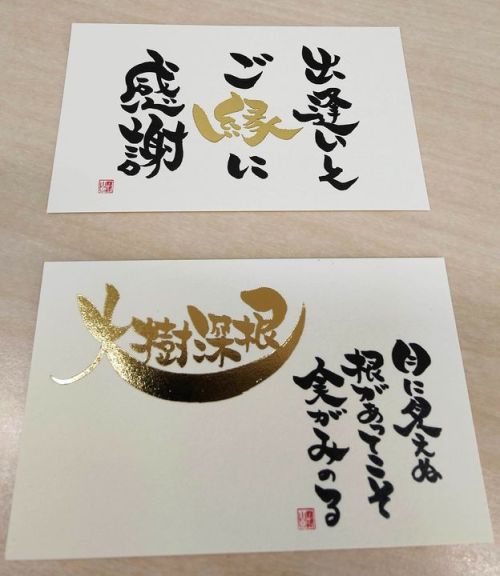 出逢いと
ご縁に
感謝
大樹深根
目に見えぬ
根があってこそ
実がみのる